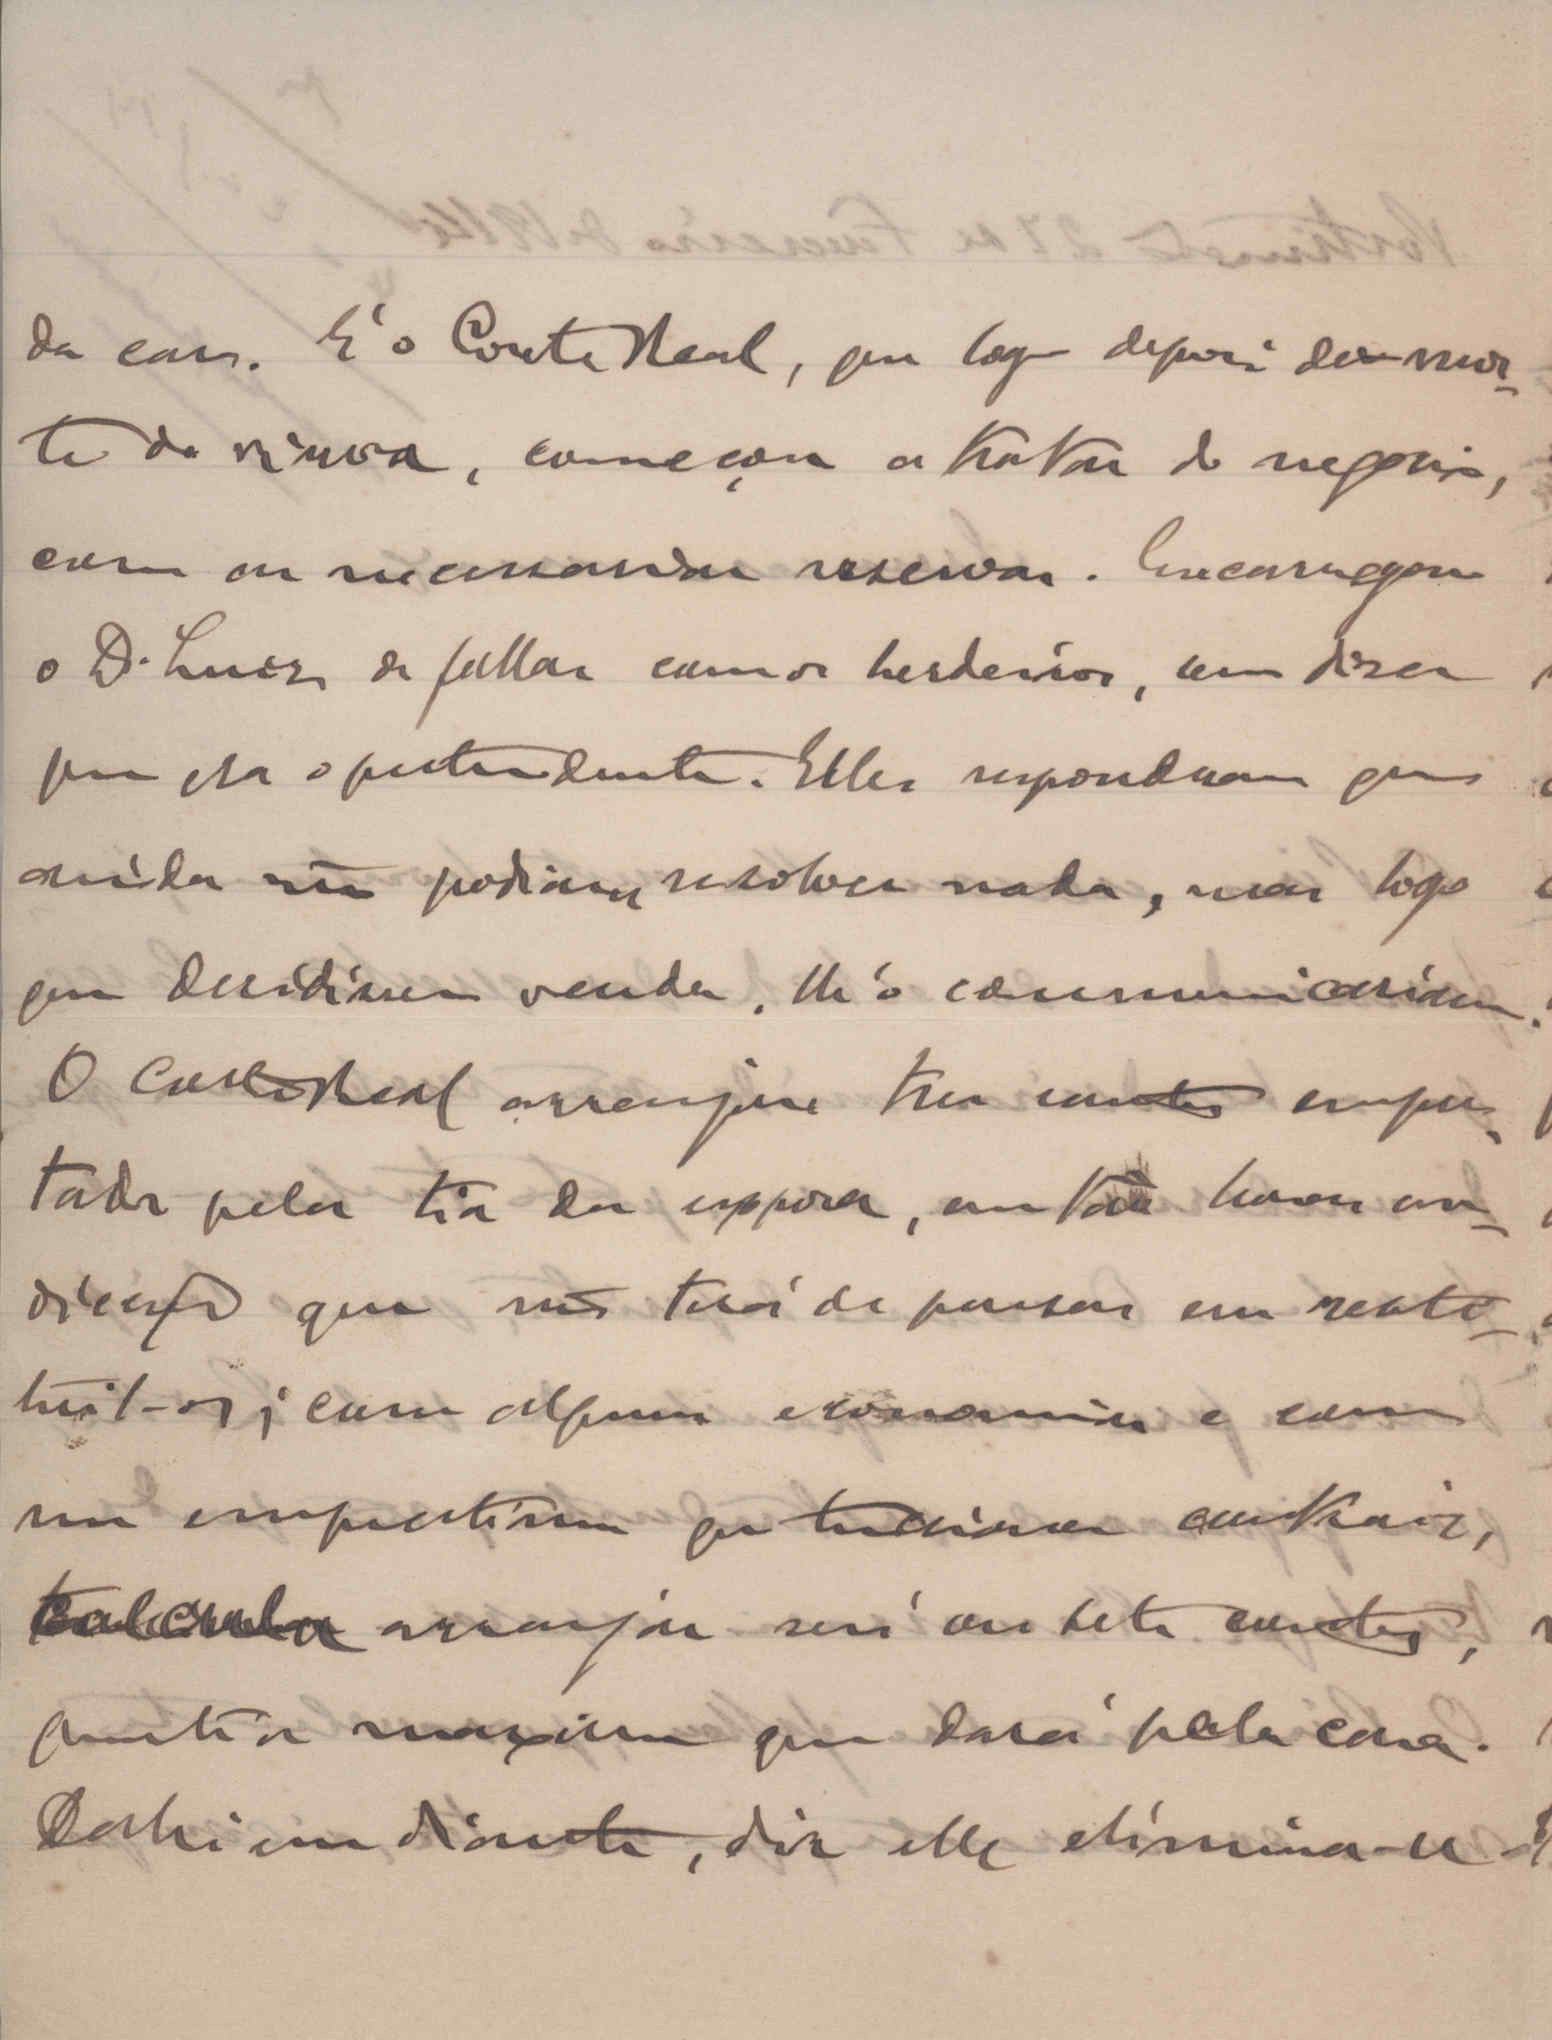 da casa. É o Corte Real, que logo depois da mor-
te da viuva, começou a tratar do negocio,
com as necessarias reservas. Encarregou
o D. Luiz de fallar com os herdeiros, sem dizer
quem era o pretendente. Elles responderam que
ainda não podiam resolver nada, mas logo
que decidissem vender, lh'o communicariam.
O Corte Real arranjou tres contos empres-
tados pela tia da esposa, em tão boas con-
dições que não terá de pensar em resti-
tuil-os; com alguma economia e com
um emprestimo que tenciona contrair,
calcula arranjar seis ou sete contos,
quantia maxima que dará pela casa.
Dahi em diante, diz elle elimina-se